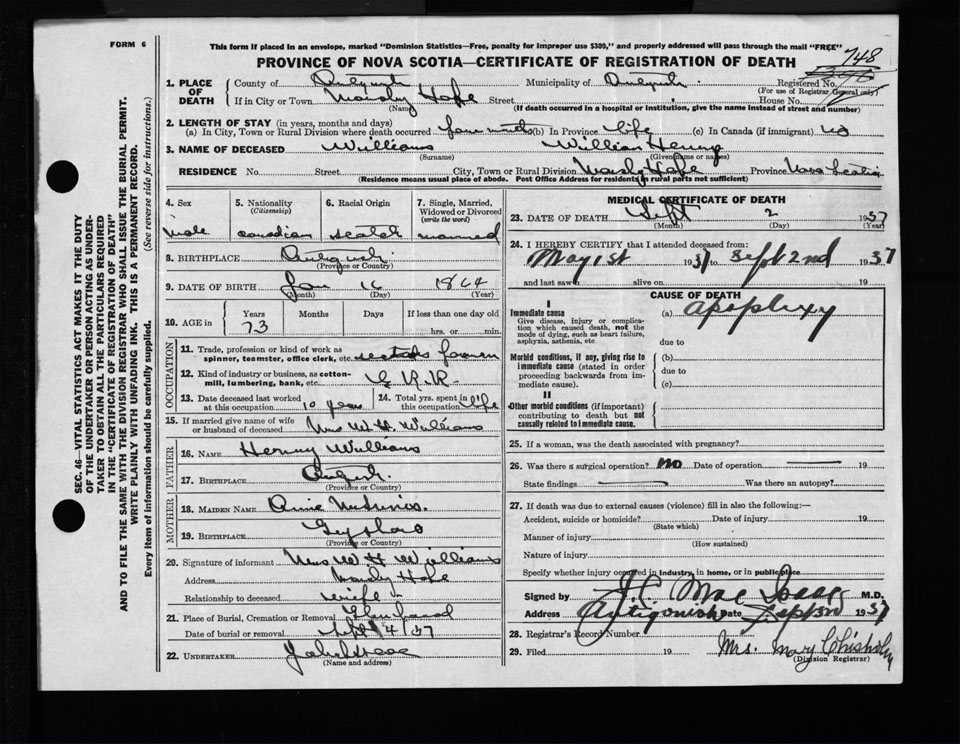 FORM 6
This form if placed in an envelope, marked "Dominion Statistics—Free, penalty for improper use $300," and properly addressed will pass through the mail "FREE"
PROVINCE OF NOVA SCOTIA—CERTIFICATE OF REGISTRATION OF DEATH
748
1. PLACE OF DEATH
County of
Municipality of
Registered No.
(For use of Registrar General only)
If in City or Town Hope Street House No.
(Name) (If death occurred in a hospital or institution, give the name instead of street and number)
2. LENGTH OF STAY (in years, months and days)
(a) In City, Town or Rural Division where death occurred (b) In Province life (c) In Canada (if immigrant) no
3. NAME OF DECEASED Williams William Henry
(Surname) (Given name or names)
RESIDENCE No. Street City, Town or Rural Division Hope Province Nova Scotia
(Residence means usual place of abode. Post Office Address for residents in rural parts not sufficient)
4. Sex male
5. Nationality (Citizenship) Canadian
6. Racial Origin Scotch
7. Single, Married, Widowed or Divorced (write the word) married
8. BIRTHPLACE
(Province or Country)
9. DATE OF BIRTH Jan 16 1864
(Month) (Day) (Year)
10. AGE in Years Months Days If less than one day old
73 hrs. or min.
OCCUPATION
11. Trade, profession or kind of work as spinner, teamster, office clerk, etc.
12. Kind of industry or business, as cotton-mill, lumbering, bank, etc.
13. Date deceased last worked at this occupation 10 years
14. Total yrs. spent in this occupation life
15. If married give name of wife or husband of deceased Mrs W H Williams
FATHER
16. NAME Henry Williams
17. BIRTHPLACE
(Province or Country)
MOTHER
18. MAIDEN NAME
19. BIRTHPLACE
(Province or Country)
20. Signature of informant Mrs W H Williams
Address Hope
Relationship to deceased wife
21. Place of Burial, Cremation or Removal
Date of burial or removal Sept 4/37
22. UNDERTAKER
(Name and address)
MEDICAL CERTIFICATE OF DEATH
23. DATE OF DEATH Sept 2 1937
(Month) (Day) (Year)
24. I HEREBY CERTIFY that I attended deceased from:
May 1st 1937 to Sept 2nd 1937
and last saw alive on 19
CAUSE OF DEATH
I
Immediate cause
Give disease, injury or complication which caused death, not the mode of dying, such as heart failure, asphyxia, asthenia, etc.
(a) apoplexy
due to
Morbid conditions, if any, giving rise to immediate cause (stated in order proceeding backwards from immediate cause).
(b)
due to
(c)
II
Other morbid conditions (if important) contributing to death but not causally related to immediate cause.
25. If a woman, was the death associated with pregnancy?
26. Was there a surgical operation? no Date of operation 19
State findings Was there an autopsy?
27. If death was due to external causes (violence) fill in also the following:—
Accident, suicide or homicide? Date of injury 19
(State which)
Manner of injury
(How sustained)
Nature of injury
Specify whether injury occurred in industry, in home, or in public place
Signed by Mac Isaac M.D.
Address Antigonish Date Sept 3rd 1937
28. Registrar's Record Number
29. Filed 19 Mrs. Mary Chisholm
(Division Registrar)
SEC. 46—VITAL STATISTICS ACT MAKES IT THE DUTY
OF THE UNDERTAKER OR PERSON ACTING AS UNDERTAKER TO OBTAIN ALL THE PARTICULARS REQUIRED
IN THE "CERTIFICATE OF REGISTRATION OF DEATH"
AND TO FILE THE SAME WITH THE DIVISION REGISTRAR WHO SHALL ISSUE THE BURIAL PERMIT.
WRITE PLAINLY WITH UNFADING INK. THIS IS A PERMANENT RECORD.
Every item of information should be carefully supplied. (See reverse side for instructions.)